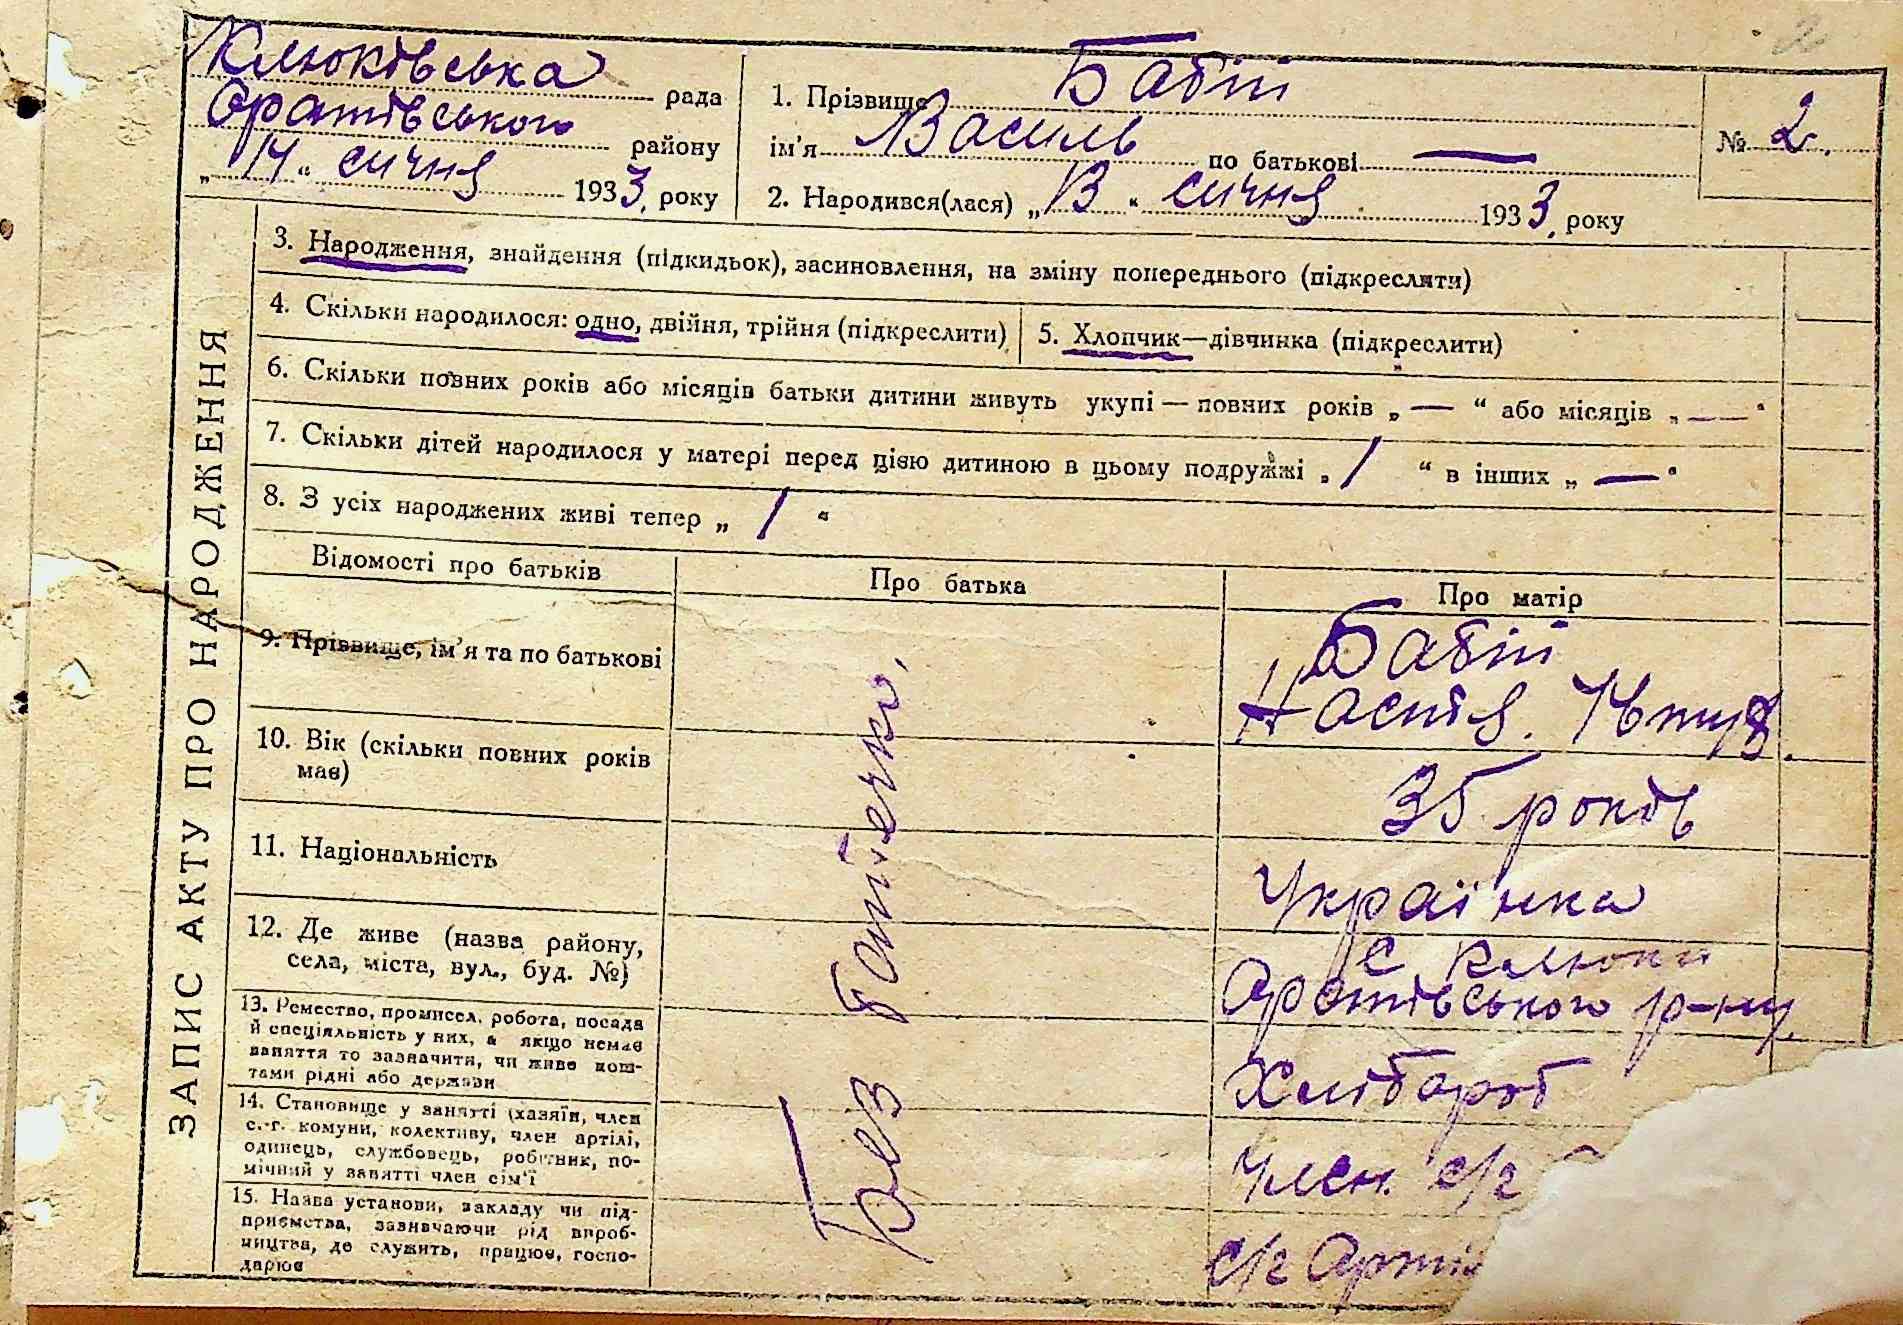 Клюківська рада
Оратівського району
„14“ січня 1933, року
1. Прізвище Бабій
ім'я Василь по батькові —
2. Народився(лася) „13“ січня 1933, року
№ 2.
ЗАПИС АКТУ ПРО НАРОДЖЕННЯ
3. Народження, знайдення (підкидьок), засиновлення, на зміну попереднього (підкреслити)
4. Скільки народилося: одно, двійня, трійня (підкреслити)
5. Хлопчик—дівчинка (підкреслити)
6. Скільки повних років або місяців батьки дитини живуть укупі — повних років „ — “ або місяців „ — “
7. Скільки дітей народилося у матері перед цією дитиною в цьому подружжі „ 1 “ в інших „ — “
8. З усіх народжених живі тепер „ 1 “
Відомості про батьків
Про батька
Про матір
9. Прізвище, ім'я та по батькові
Бабій
Настя.
10. Вік (скільки повних років
має)
35 років
11. Національність
Українка
12. Де живе (назва району,
села, міста, вул., буд. №)
с. Клюки
Оратівського р-ну.
13. Ремество, промисел, робота, посада
й спеціяльність у них, а якщо немає
заняття то зазначити, чи живе кош-
тами рідні або держави
Хлібороб
14. Становище у занятті (хазяїн, член
с.-г. комуни, колективу, член артілі,
одинець, службовець, робітник, по-
мічний у занятті член сім'ї
Член. с/г
15. Назва установи, закладу чи під-
приємства, зазначаючи рід вироб-
ництва, де служить, працює, госпо-
дарює
с/г Арті
Без батечка,